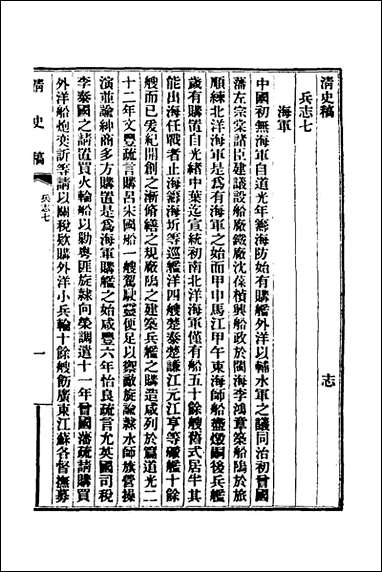 清史稿
志
兵志七
海軍
中國初無海軍自道光年籌海防始有購艦外洋以輔水軍之議同治初曾國
藩左宗棠諸臣建議設船廠鐵廠沈葆楨興船政於閩海李鴻章築船隖於旅
順練北洋海軍是為有海軍之始而甲申馬江甲午東海師船盡燬嗣後兵艦
歲有購置自光緒中葉迄宣統初南北洋海軍僅有船五十餘艘舊式居半其
能出海任戰者止海籌海圻等巡艦洋四艘楚泰楚謙江元江亨等礮艦十餘
艘而已爰紀開創之漸修繕之規廠隖之建築兵艦之購造咸列於篇道光二
十二年文豐疏言購呂宋國船一艘駕駛靈便足以禦敵旋諭隸水師旗營操
演並諭紳商多方購置是為海軍購艦之始咸豐六年怡良疏言允英國司稅
李泰國之請置買火輪船以勦粵匪旋隸向榮調遣十一年曾國藩疏請購買
外洋船炮奕訢等請以關稅欵購外洋小兵輪十餘艘飭廣東江蘇各督撫募
清史稿
兵志七
一